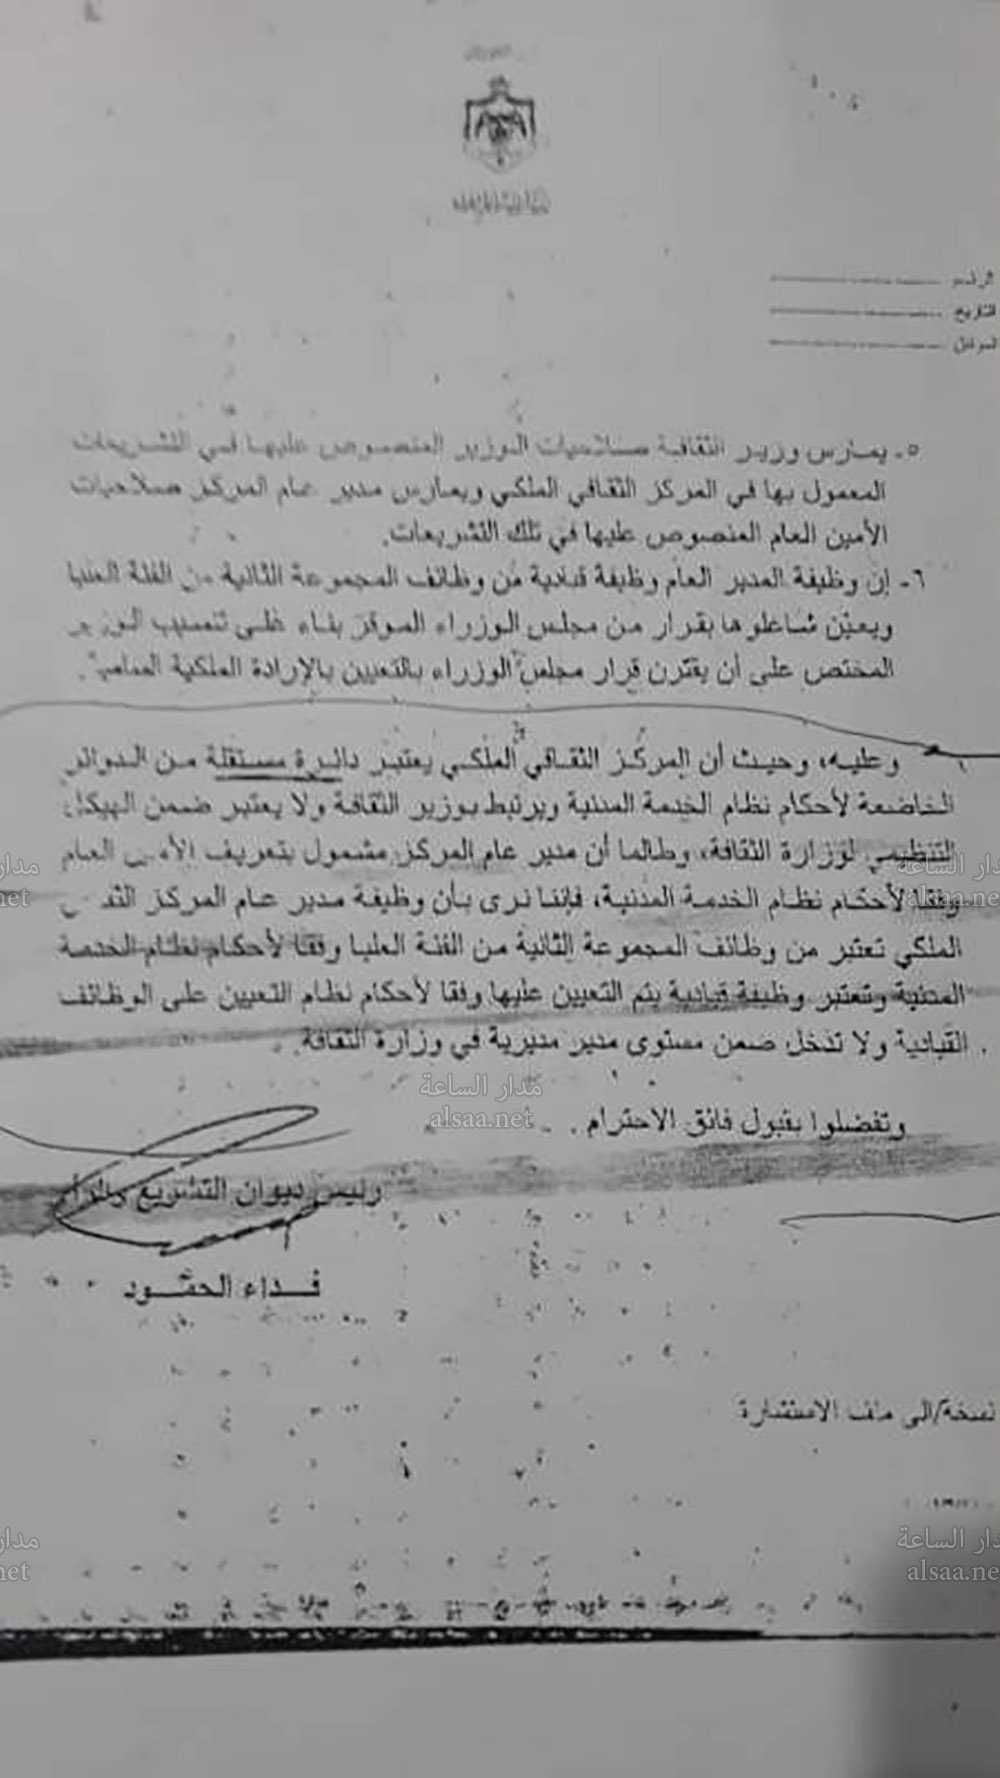 الرقم
التاريخ
الموافق
٥- يمارس وزير الثقافة صلاحيات الوزير المنصوص عليها في التشريعات
المعمول بها في المركز الثقافي الملكي ويمارس مدير عام المركز صلاحيات
الأمين العام المنصوص عليها في تلك التشريعات.
٦- إن وظيفة المدير العام وظيفة قيادية من وظائف المجموعة الثانية من الفئة العليا
ويعين شاغلوها بقرار من مجلس الوزراء الموقر بناء على تنسيب الوزير
المختص على أن يقترن قرار مجلس الوزراء بالتعيين بالإرادة الملكية السامية.
وعليه، وحيث أن المركز الثقافي الملكي يعتبر دائرة مستقلة من الدوائر
الخاضعة لأحكام نظام الخدمة المدنية ويرتبط بوزير الثقافة ولا يعتبر ضمن الهيكل
التنظيمي لوزارة الثقافة، وطالما أن مدير عام المركز مشمول بتعريف الأمين العام
وفقا لأحكام نظام الخدمة المدنية، فإننا نرى بأن وظيفة مدير عام المركز الثقافي
الملكي تعتبر من وظائف المجموعة الثانية من الفئة العليا وفقا لأحكام نظام الخدمة
المدنية وتعتبر وظيفة قيادية يتم التعيين عليها وفقا لأحكام نظام التعيين على الوظائف
القيادية ولا تدخل ضمن مستوى مدير مديرية في وزارة الثقافة.
وتفضلوا بقبول فائق الاحترام.
رئيس ديوان التشريع والرأي
فداء الحمود
نسخة/الى ملف الاستشارة
مدار الساعة
alsaa.net